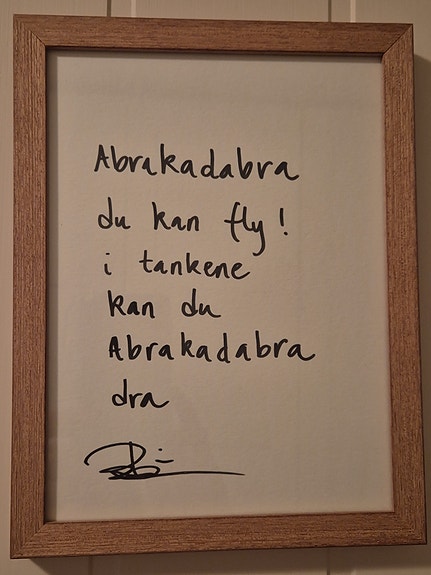 Abrakadabra
du kan fly!
i tankene
kan du
Abrakadabra
dra